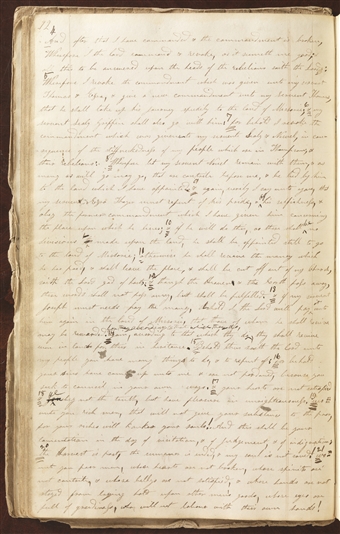 And after that I have commanded & the commandment is broken
Wherefore I the Lord command & revoke, as it seemeth me good
& this to be answered upon the heads of the rebelious saith the Lord
Wherefore I revoke the commandment which was given unto my servent
Thomas & & give a new commandment unto my servent Thomas
that he shall take up his journey speedily to the land of Missorie &
servent Selah Griffin shall also go with him for behold I revoke the
commandment which was given unto my servent Selah & Newel in cons
equence of the stiffneckedness of my People which are in Thompson &
their rebelions wherefore let my servent Newel remain with them & as
many as will go may go, that are contrite before me, & be led by him
to the land which I have appointed & again, verily I say unto you, that
my servent Ezra Thayer must repent of his pride, & his selfishness, &
obey the former commandment which I have given him concerning
the place upon which he lives & if he will do this, as there shall be
divisions made upon the land, he shall be appointed still to go
to the land of Missorie; otherwise he shall receive the money which
he has paid, & shall leave the place, & shall be cut off out of my church
saith the Lord God of hosts; & though the Heaven & the Earth pass away
these words shall not pass away, but shall be fulfilled & if my servent
Joseph must needs pay the money, behold I the Lord will pay it unto
him again in the land of Missorie, that those of whom he shall receive
may be rewarded again, according to that which they do they shall receive
even in lands for their inheritance. Behold thus saith the Lord unto
my people you have many things to do, & to repent of for behold
your sins have come up unto me, & are not pardoned, because you
seek to counsel in your own ways & your hearts are not satisfied
& obey not the truth, but have pleasure in unrighteousness. Wo
you rich men, that will not give your substance to the poor,
for your riches will canker your souls. And this shall be your
lamentation in the day of visitation, & of judgement, & of indignation
the harvest is past, the summer is ended, & my soul is not saved
you poor men, whose hearts are not broken, whose spirits are
not contrite, & whose bellies are not satisfied, & whose hands are not
stayed from laying hold upon other mens goods, whose eyes are
full of greediness, who will not labour with their own hands!